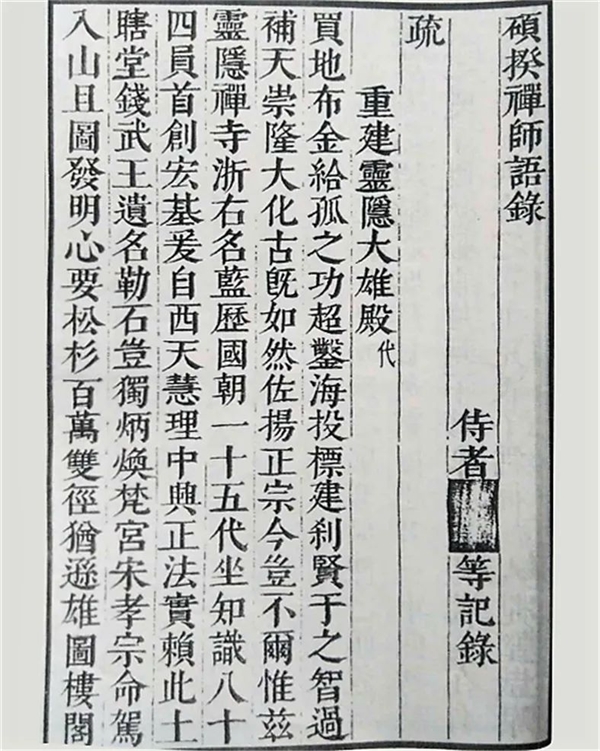 碩揆禪師語錄
侍者 等記錄
疏
重建靈隱大雄殿代
買地布金給孤之功超鑿海投標建刹賢于之智過
補天崇隆大化古旣如然佐揚正宗今豈不爾惟茲
靈隱禪寺浙右名藍歷國朝一十五代坐知識八十
四員首創宏基爰自西天慧理中興正法實賴此土
瞎堂錢武王遺名勒石豈獨炳煥梵宮宋孝宗命駕
入山且圖發明心要松杉百萬雙徑猶遜雄圖樓閣